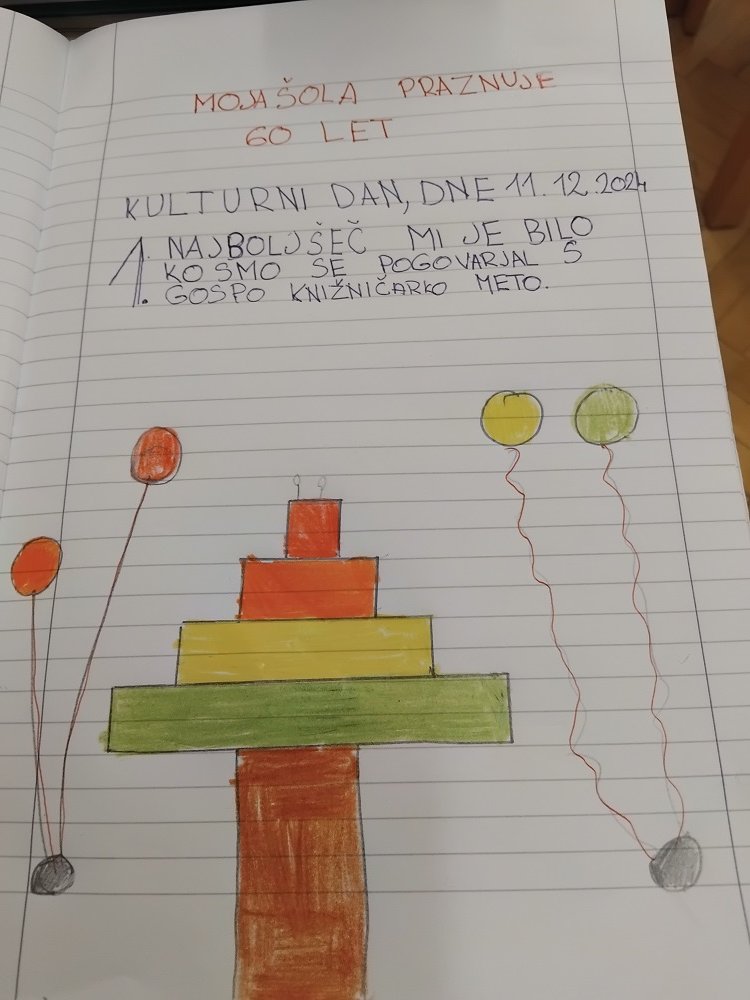 MOJA ŠOLA PRAZNUJE
60 LET
KULTURNI DAN, DNE 11.12.2024
1. NAJBOLJŠEČ MI JE BILO
KO SMO SE POGOVARJAL S
GOSPO KNIŽNIČARKO METO.